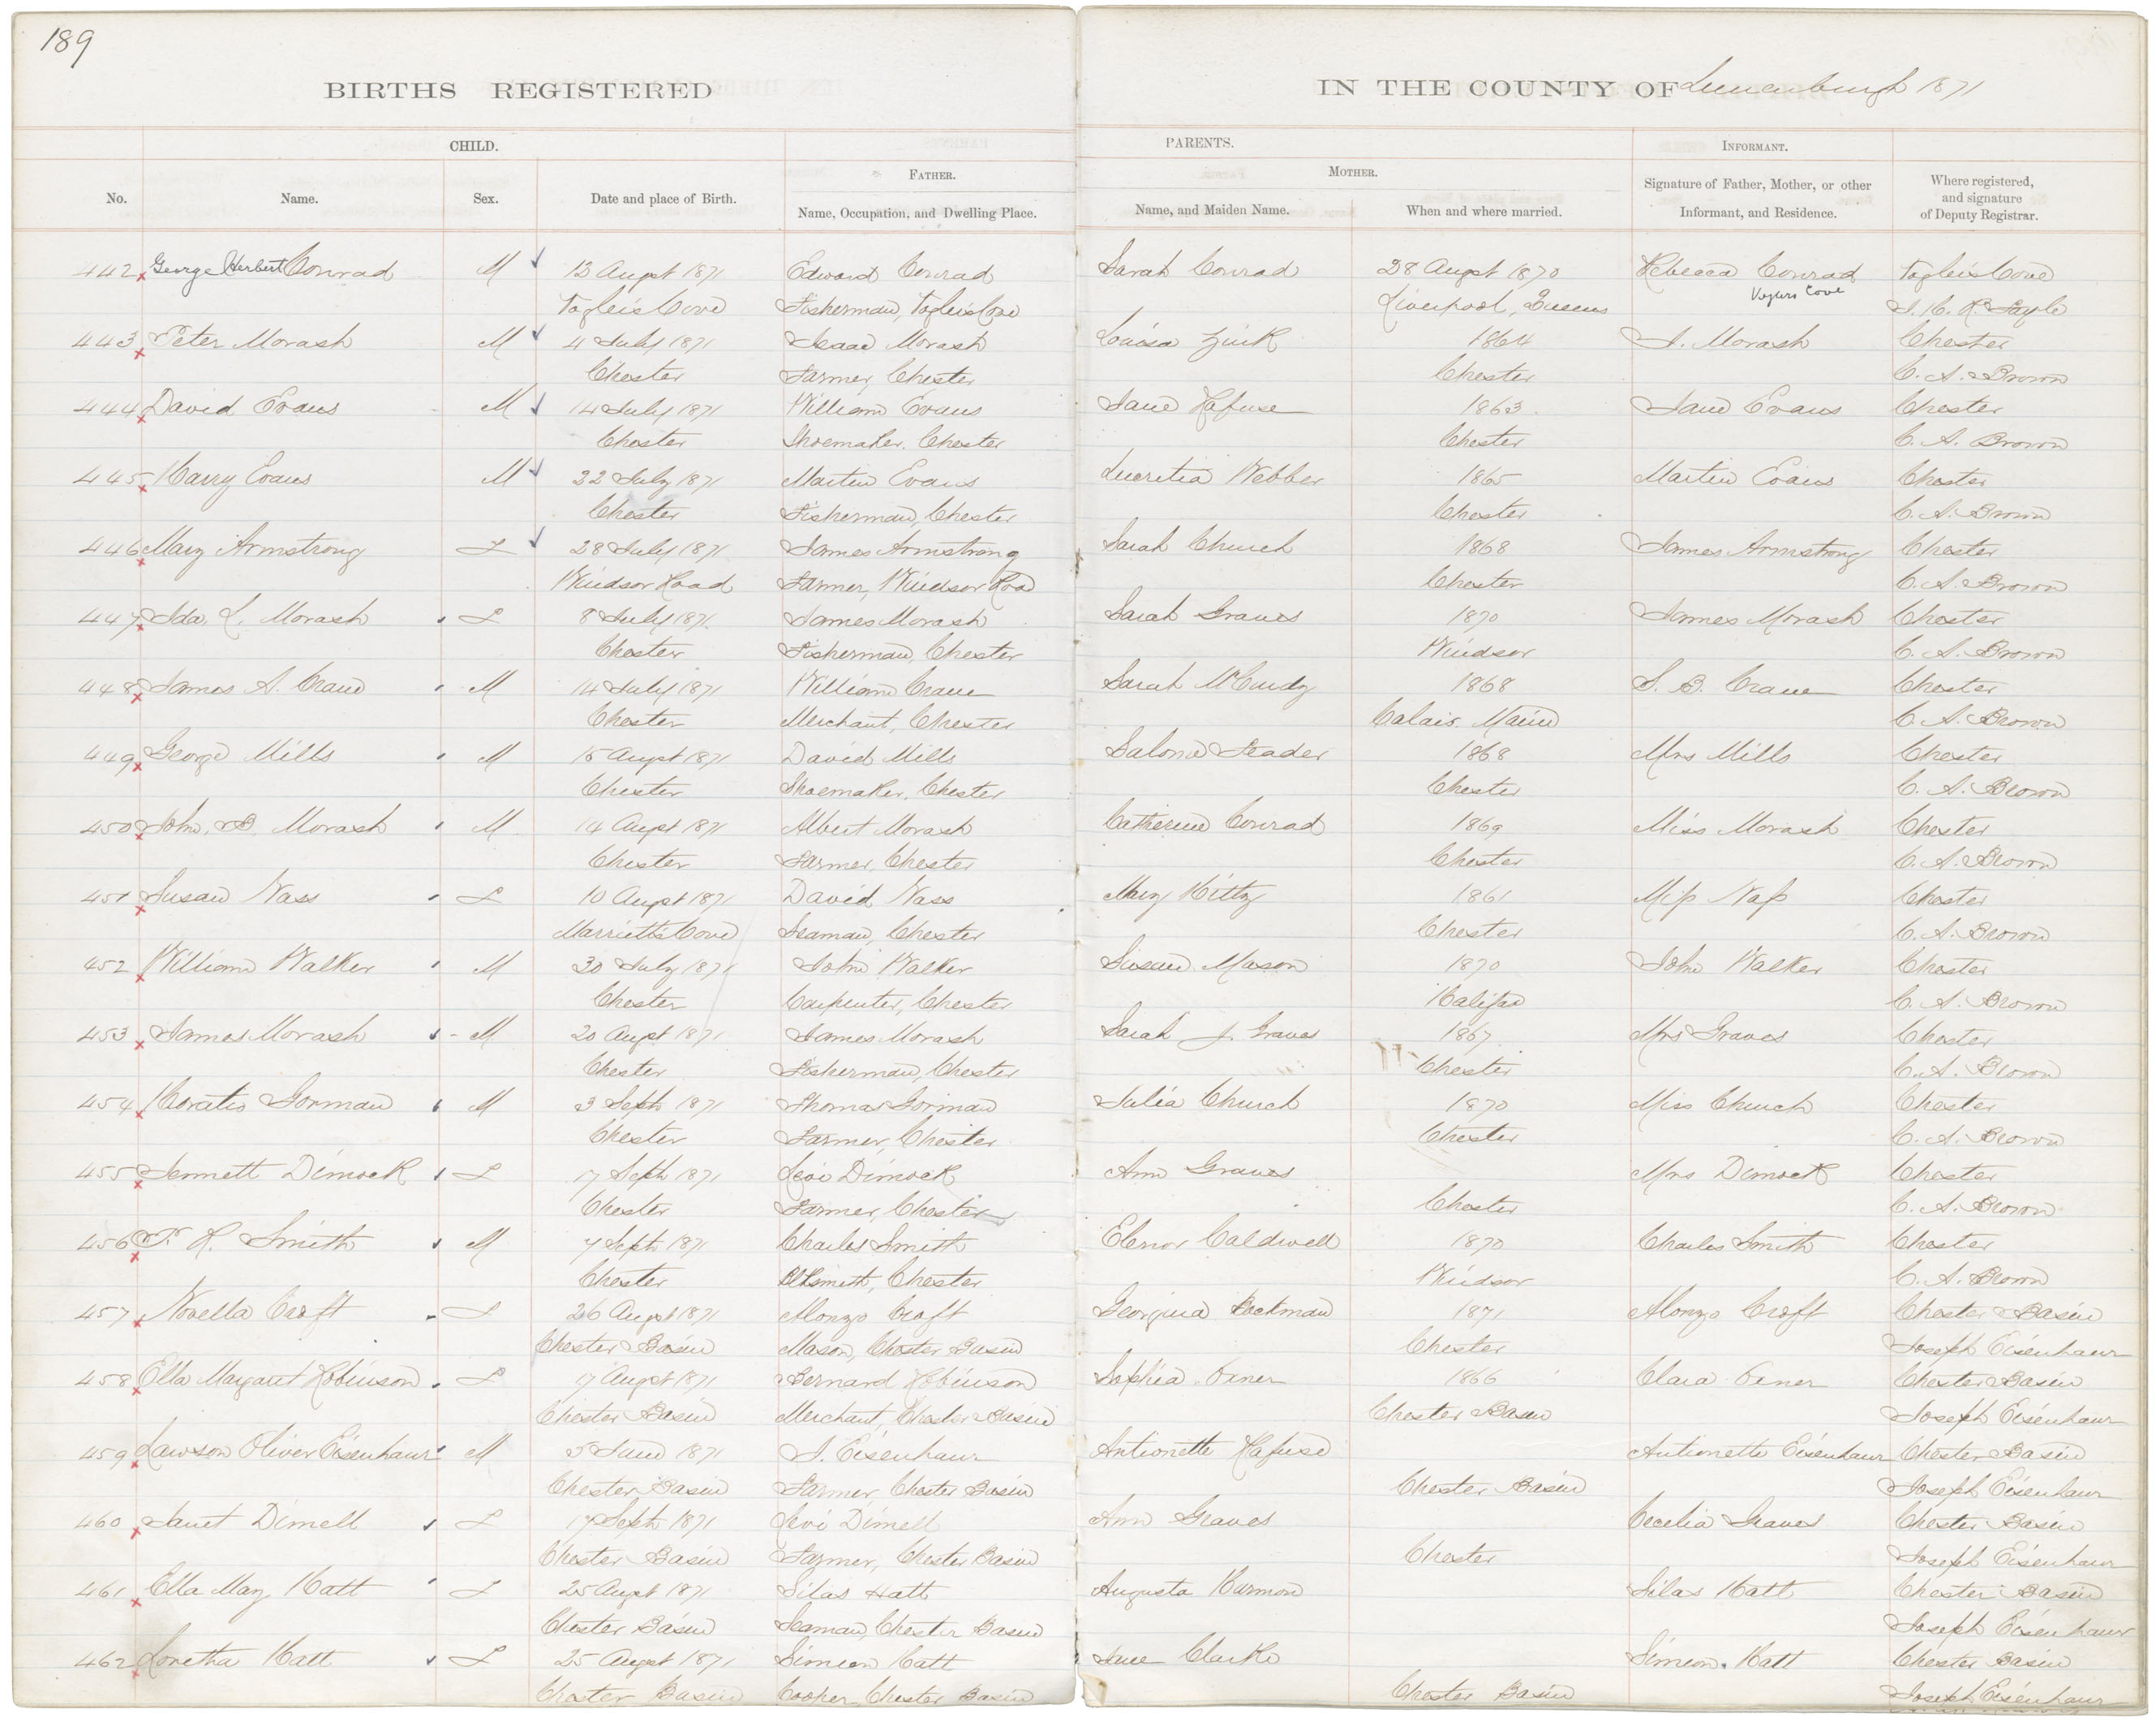 189
BIRTHS REGISTERED IN THE COUNTY OF Lunenburgh 1871
CHILD. PARENTS. INFORMANT.
FATHER. MOTHER.
No. Name. Sex. Date and place of Birth. Name, Occupation, and Dwelling Place. Name, and Maiden Name. When and where married. Signature of Father, Mother, or other Informant, and Residence. Where registered, and signature of Deputy Registrar.
442 George Herbert Conrad M 12 Augst 1871 Edward Conrad Sarah Conrad 28 Augst 1870 Rebecca Conrad Voglers Cove
Voglers Cove Fisherman, Voglers Cove Liverpool, Queens Voglers Cove
443 Peter Morash M 4 July 1871 Isaac Morash Louisa Zink 1864 I. Morash Chester
Chester Farmer, Chester Chester C. A. Brown
444 David Evans M 14 July 1871 William Evans Jane Hafuse 1863 Jane Evans Chester
Chester Shoemaker, Chester Chester C. A. Brown
445 Harry Evans M 22 July 1871 Martin Evans Lucretia Webber 1865 Martin Evans Chester
Chester Fisherman, Chester Chester C. A. Brown
446 Mary Armstrong F 28 July 1871 James Armstrong Sarah Church 1868 James Armstrong Chester
Windsor Road Farmer, Windsor Road Chester C. A. Brown
447 Ida L. Morash F 8 July 1871 James Morash Sarah Graves 1870 James Morash Chester
Chester Fisherman, Chester Windsor C. A. Brown
448 James A. Crane M 14 July 1871 William Crane Sarah McCurdy 1868 S. B. Crane Chester
Chester Merchant, Chester Calais, Maine C. A. Brown
449 George Mills M 15 Augst 1871 David Mills Salome 1868 Mrs Mills Chester
Chester Shoemaker, Chester Chester C. A. Brown
450 John B. Morash M 14 Augst 1871 Albert Morash Catherine Conrad 1869 Miss Morash Chester
Chester Farmer, Chester Chester C. A. Brown
451 Susan Nass F 10 Augst 1871 David Nass Mary Hiltz 1861 Miss Nass Chester
Marrietts Cove Seaman, Chester Chester C. A. Brown
452 William Walker M 30 July 1871 John Walker Susan Mason 1870 John Walker Chester
Chester Carpenter, Chester Halifax C. A. Brown
453 James Morash M 20 Augst 1871 James Morash Sarah J. Graves 1867 Mrs Graves Chester
Chester Fisherman, Chester Chester C. A. Brown
454 Horatio Gorman M 3 Septr 1871 Thomas Gorman Julia Church 1870 Miss Church Chester
Chester Farmer, Chester Chester C. A. Brown
455 Jennett Dimock F 17 Septr 1871 Levi Dimock Ann Graves Mrs Dimock Chester
Chester Farmer, Chester Chester C. A. Brown
456 R. Smith M 7 Septr 1871 Charles Smith Elenor Caldwell 1870 Charles Smith Chester
Chester Blksmith, Chester Windsor C. A. Brown
457 Novella Croft F 26 Augst 1871 Alonzo Croft Georgina Backman 1871 Alonzo Croft Chester Basin
Chester Basin Mason, Chester Basin Chester Joseph Eisenhaur
458 Ella Margaret Robinson F 17 Augst 1871 Bernard Robinson Sophia Orner 1866 Clara Orner Chester Basin
Chester Basin Merchant, Chester Basin Chester Basin Joseph Eisenhaur
459 Lawson Oliver Eisenhaur M 5 June 1871 J. Eisenhaur Antionette Hafuse Antionette Eisenhaur Chester Basin
Chester Basin Farmer, Chester Basin Chester Basin Joseph Eisenhaur
460 Janet Dimell F 17 Septr 1871 Levi Dimell Ann Graves Cecelia Graves Chester Basin
Chester Basin Farmer, Chester Basin Chester Joseph Eisenhaur
461 Ella May Hatt F 25 Augst 1871 Silas Hatt Augusta Harmon Silas Hatt Chester Basin
Chester Basin Seaman, Chester Basin Joseph Eisenhaur
462 Loretha Hatt F 25 Augst 1871 Simeon Hatt Jane Clarke Simeon Hatt Chester Basin
Chester Basin Cooper, Chester Basin Chester Basin Joseph Eisenhaur